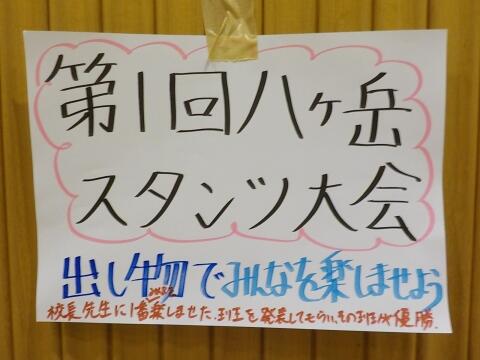 第1回八ヶ岳
スタンツ大会
出し物でみんなを楽しませよう
校長先生に1番楽しませた班を発表してもらい、その班が優勝.